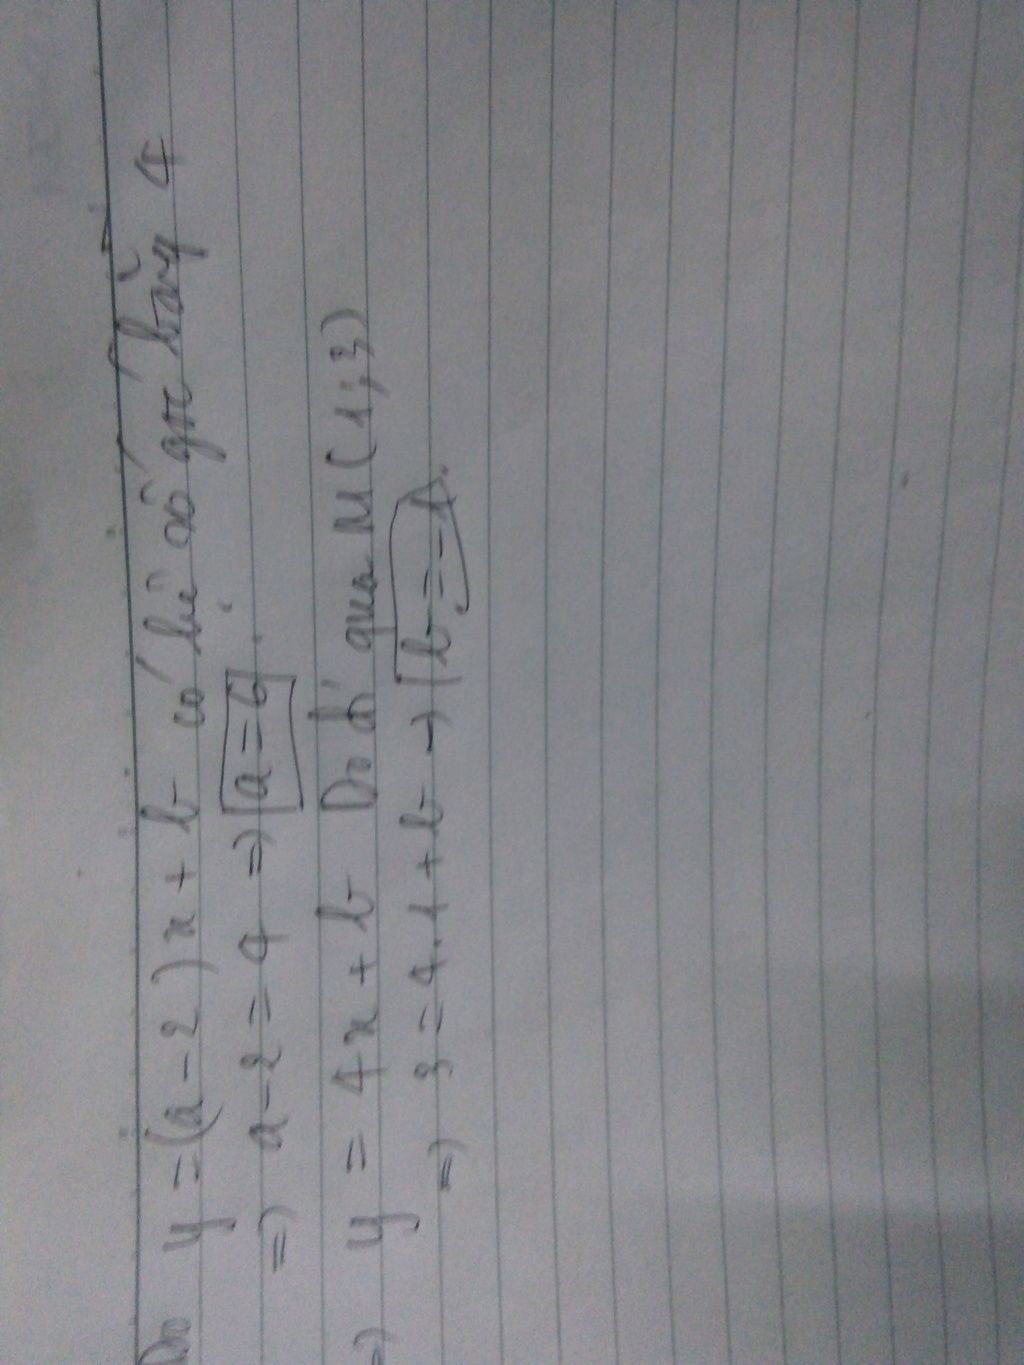 Do y = (a - 2)x + b có hệ số góc bằng 4
=> a - 2 = 4 => a = 6.
=> y = 4x + b Do đó qua M(1;3)
=> 3 = 4.1 + b → b = -1.